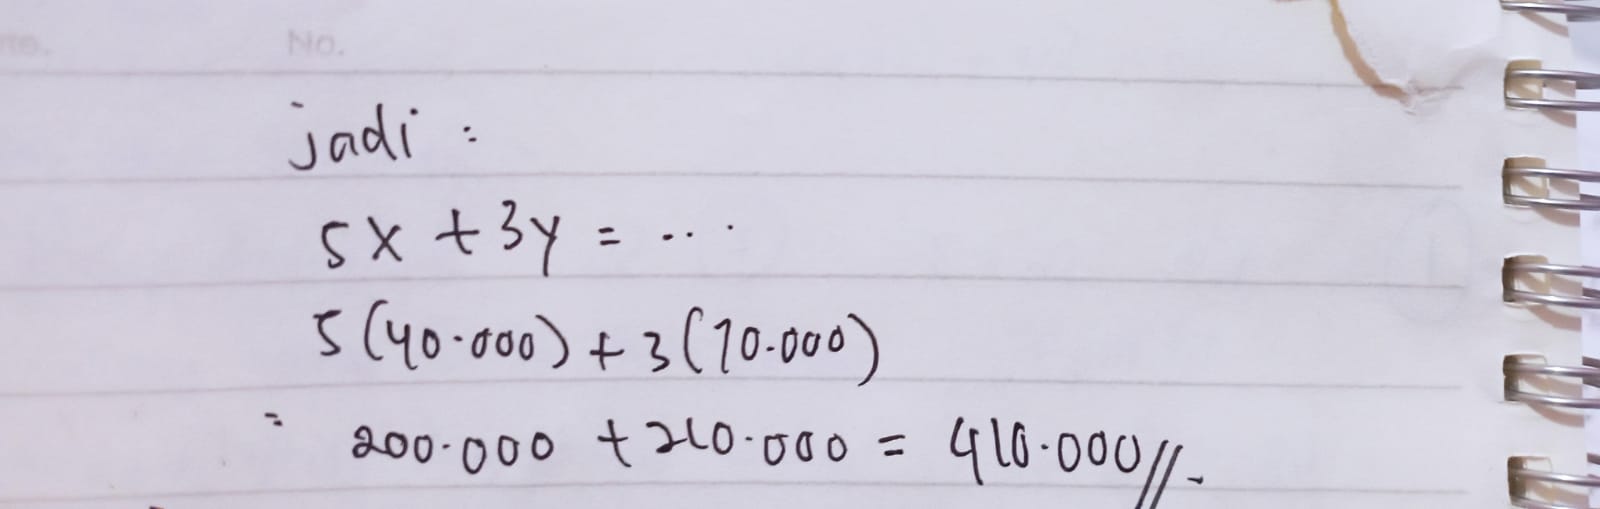 No.
jadi :
5x + 3y = ....
5 (40.000) + 3 (70.000)
= 200.000 + 210.000 = 410.000//.